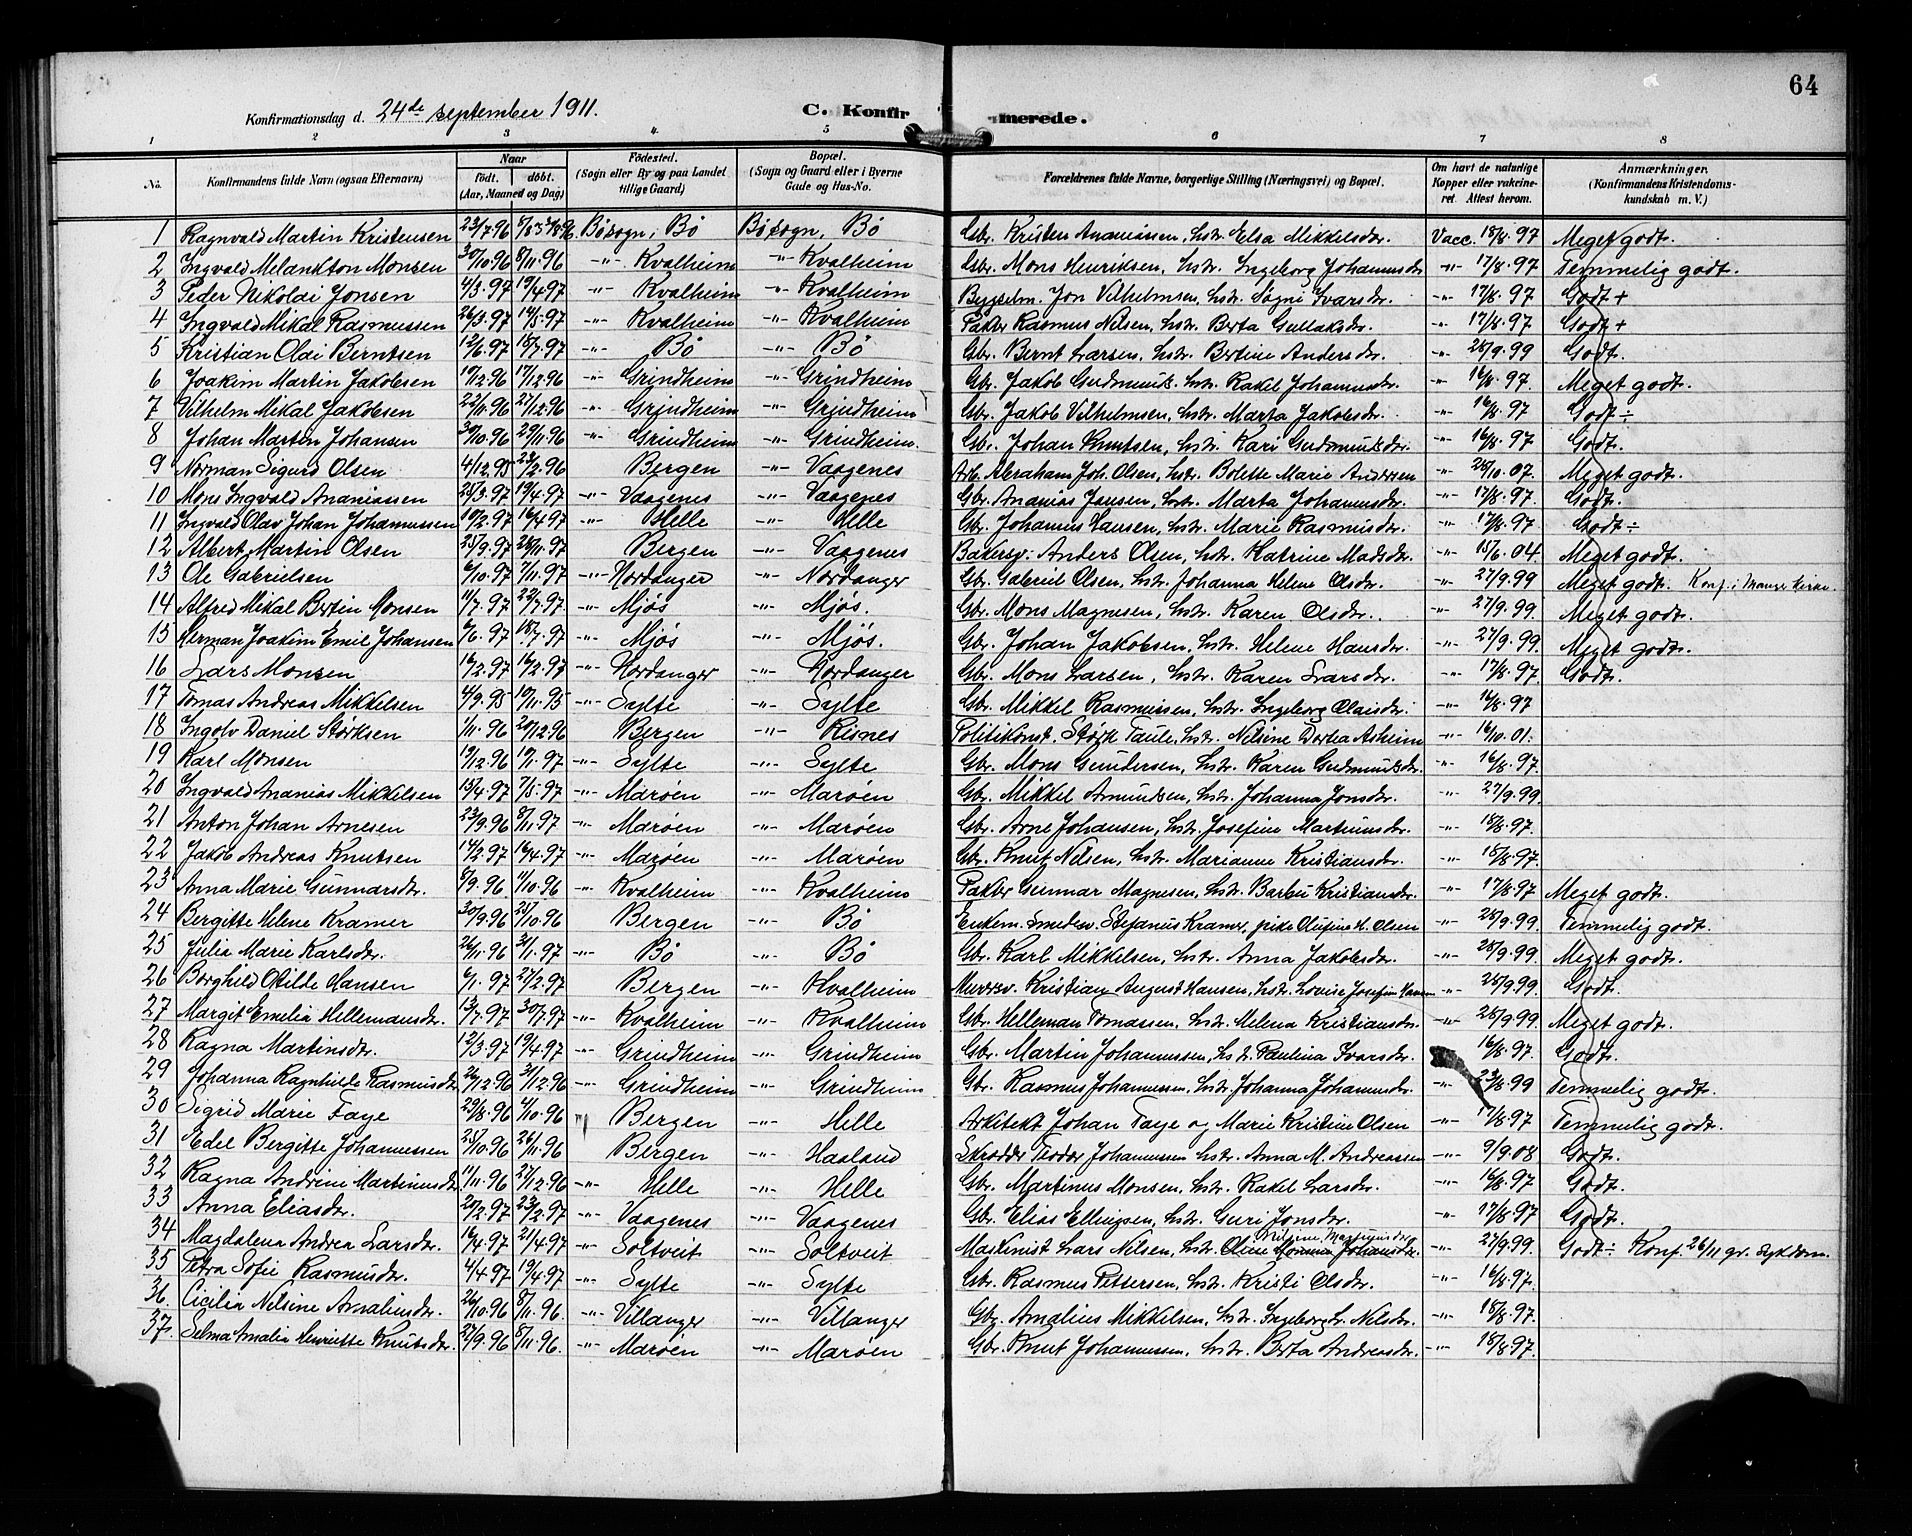 64
Konfirmationsdag d. 24de september 1911. C. Konfirmerede.
1 2 3 4 5 6 7 8
No. Konfirmandens fulde Navn (ogsaa Efternavn) Naar født. døbt. (Aar, Maaned og Dag) Fødested. (Sogn eller By og paa Landet tillige Gaard) Bopæl. (Sogn og Gaard eller i Byerne Gade og Hus-No. Forældrenes fulde Navne, borgerlige Stilling (Næringsvei) og Bopæl. Om havt de naturlige Kopper eller vakcineret. Attest herom. Anmærkninger. (Konfirmandens Kristendomskundskab m. V.)
1 Ragnvald Martin Kristensen 23/7.96 Bøsogn, Bø Bøsogn, Bø Gbr. Kristen Ananiassen, hstr. Elsa Mikkelsdr. Vacc. 18/8.97 Meget godt.
2 Ingvald Melankton Monsen 30/10.96 8/11.96 -"- Kvalheim -"- Kvalheim Gbr. Mons Henriksen, hstr. Ingeborg Johannesdr -"- 17/8.97 Temmelig godt.
3 Peder Nikolai Jonsen 4/3.97 19/4.97 -"- Kvalheim -"- Kvalheim Bygselm. Jon Vilhelmsen, hstr. Søgni Ivarsdr. -"- 17/8.97 Godt+
4 Ingvald Mikal Rasmussen 26/3.97 14/5.97 -"- Kvalheim -"- Kvalheim Pakbr Rasmus Nilsen, hstr. Berta Gullaksdr. -"- 17/8.97 Godt+
5 Kristian Olai Berntsen 12/6.97 18/7.97 -"- Bø -"- Bø Gbr. Bernt Larsen, hstr. Bertine Andersdr. -"- 28/9.99 Godt.
6 Joakim Martin Jakobsen 10/12.96 17/12.96 -"- Grindheim -"- Grindheim Gbr. Jakob Gudmunds. hstr. Rakel Johannesdr. -"- 16/8.97. Meget godt.
7 Vilhelm Mikal Jakobsen 22/11.96 27/12.96 -"- Grindheim -"- Grindheim Gbr. Jakob Vilhelmsen, hstr. Marta Jakobsdr. -"- 16/8.97 Godt÷
8 Johan Martin Johansen 30/10.96 29/11.96 -"- Grindheim -"- Grindheim. Gbr. Johan Knutsen, hstr. Kari Gudmundsdr. -"- 16/8.97 Godt.
9 Norman Sigurd Olsen 4/12.95 23/2.96 Bergen -"- Vaagenes Arb. Abraham Joh. Olsen, hstr. Bolette Marie Andersen -"- 28/10.07. Meget godt.
10 Mons Ingvald Ananiassen 25/3.97 19/4.97 -"- Vaagenes -"- Vaagenes Gbr. Ananias Jansen, hstr. Marta Johannesdr. -"- 17/8.97. Godt.
11 Ingvald Olav Johan Johannessen 10/2.97 16/4.97 -"- Helle -"- Helle Gbr. Johannes Hansen, hstr. Marie Rasmusdr. -"- 17/8.97 Godt÷
12 Albert Martin Olsen 25/9.97 28/11.97 Bergen -"- Vaagenes Bakersv. Anders Olsen, hstr. Katrine Madsdr. -"- 15/6.04. Meget godt.
13 Ole Gabrielsen 6/10.97 7/11.97 -"- Nordanger -"- Nordanger Gbr. Gabriel Olsen, hstr. Johanna Helene Olsdr. -"- 27/9.99 Meget godt. Konf. i Manger Kirke.
14 Alfred Mikal Bertin Monsen 11/7.97 22/7.97 -"- Mjøs -"- Mjøs. Gbr. Mons Magnesen, hstr. Karen Olsdr. -"- 27/9.99. Meget godt.
15 Herman Joakim Emil Johansen 6/6.97 18/7.97 -"- Mjøs -"- Mjøs. Gbr. Johan Jakobsen, hstr. Helene Hansdr. -"- 27/9.99. Meget godt.
16 Lars Monsen 16/2.97 16/2.97 -"- Nordanger -"- Nordanger Gbr. Mons Larsen, hstr. Karen Larsdr. -"- 17/8.97. Godt.
17 Tomas Andreas Mikkelsen 4/9.95 10/11.95 -"- Sylte -"- Sylte Gbr. Mikkel Rasmussen, hstr. Ingeborg Olaisdr. -"- 16/8.97
18 Ingolv Daniel Størksen 1/11.96 20/12.96 Bergen -"- Risnes Politikonst. Størk Taule, hstr. Nilsine Dortea Asheim -"- 16/10.01.
19 Karl Monsen 19/12.96 10/1.97 -"- Sylte -"- Sylte Gbr. Mons Gundersen, hstr. Karen Gudmundsdr. -"- 16/8.97.
20 Ingvald Ananias Mikkelsen 15/4.97 7/5.97 -"- Marøen -"- Marøen Gbr. Mikkel Amundsen, hstr. Johanna Jonsdr. -"- 27/9.99.
21 Anton Johan Arnesen 23/9.96 8/11.97 -"- Marøen -"- Marøen Gbr. Arne Johansen, hstr. Josefine Martinusdr. -"- 18/8.97.
22 Jakob Andreas Knutsen 14/2.97 16/4.97 -"- Marøen -"- Marøen Gbr. Knut Nilsen, hstr. Marianne Kristiansdr. -"- 18/8.97.
23 Anna Marie Gunnarsdr. 8/9.96 11/10.96 -"- Kvalheim -"- Kvalheim Pakbr Gunnar Magnesen, hstr. Barbu Kristiansdr -"- 17/8.97 Meget godt.
24 Bergitte Helene Kramer 30/9.96 25/10.96 Bergen -"- Bø Enkem. Smedesv. Stefanus Kramer, pike Olufine H. Olsen -"- 28/9.99. Temmelig godt.
25 Julia Marie Karlsdr. 26/11.96 31/1.97 -"- Bø -"- Bø Gbr. Karl Mikkelsen, hstr. Anna Jakobsdr. -"- 28/9.99. Meget godt.
26 Borghild Otilde Hansen 6/1.97 27/2.97 Bergen -"- Kvalheim Murersv. Kristian August Hansen, hstr. Lovise Josefine Hansen -"- 28/9.99. Godt.
27 Margit Emelia Hellemansdr. 13/7.97 30/7.97 -"- Kvalheim -"- Kvalheim Gbr. Helleman Tomassen, hstr. Helena Kristiansdr. -"- 28/9.99 Meget godt.
28 Ragna Martinsdr. 12/3.97 19/4.97 -"- Grindheim -"- Grindheim Gbr. Martin Johannessen, hstr. Paulina Ivarsdr. 16/8.97. Godt.
29 Johanna Ragnhilde Rasmusdr. 26/12.96 31/12.96 -"- Grindheim -"- Grindheim Gbr. Rasmus Johannessen, hstr. Johanna Johannesdr. -"- 23/8.99 Temmelig godt.
30 Sigrid Marie Faye 23/8.96 4/10.96 Bergen -"- Helle Arkitekt Johan Faye og Marie Kristine Olsen -"- 17/8.97 Temmelig godt.
31 Edel Bergitte Johannessen 25/10.96 26/11.96 Bergen -"- Haaland Skrædder Teodor Johannessen hstr. Anna M. Andreassen -"- 9/9.08 Godt.
32 Ragna Andrine Martinusdr. 11/11.96 27/12.96 -"- Helle -"- Helle Gbr. Martinus Monsen, hstr. Rakel Larsdr. -"- 16/8.97 Godt.
33 Anna Eliasdr. 20/2.97 23/2.97 -"- Vaagenes -"- Vaagenes Gbr. Elias Ellingsen, hstr. Guri Jonsdr. -"- 17/8.97 Godt.
34 Magdalena Andrea Larsdr. 16/4.97 21/4.97 -"- Soltveit -"- Soltveit Maskinist Lars Nilsen, hstr. Nilsine Martinusdr -"- 27/9.99. Godt÷ Konf. 26/11 gr. sykdom.
35 Petra Sofie Rasmusdr. 4/4.97 19/4.97 -"- Sylte -"- Sylte Gbr. Rasmus Pettersen, hstr. Kristi Olsdr. -"- 16/8.97.
36. Cicilia Nilsine Amaliusdr. 26/10.96 8/11.96. -"- Villanger -"- Villanger Gbr. Amalius Mikkelsen, hstr. Ingeborg L. Nilsdr. -"- 18/8.97.
37. Selma Amalia Henriette Knutsdr. 27/9.96 8/11.96. -"- Marøen -"- Marøen Gbr. Knut Johannessen, hstr. Berta Andreasdr. -"- 18/8.97.